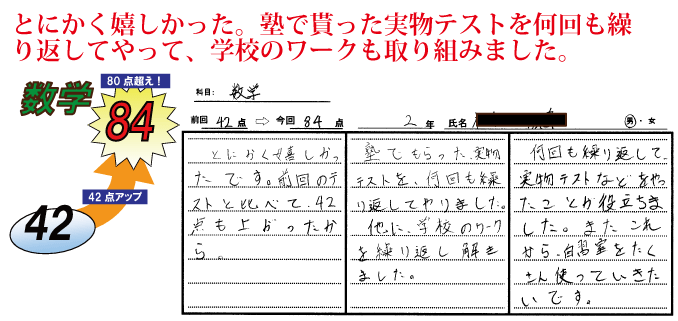 とにかく嬉しかった。塾で貰った実物テストを何回も繰
り返してやって、学校のワークも取り組みました。
数学
80点超え！
84
42点アップ
42
科目: 数学
前回 42点 ⇨ 今回 84点 2年 氏名 男・女
とにかく嬉しかっ
たです。前回のテ
ストと比べて、42
点も上がったか
ら。
塾でもらった、実物
テストを、何回も繰
り返してやりました。
他に、学校のワーク
を繰り返し解き
ました。
何回も繰り返して、
実物テストなどをやっ
たことが役立ちま
した。またこれ
から、自習室をたく
さん使っていきた
いです。